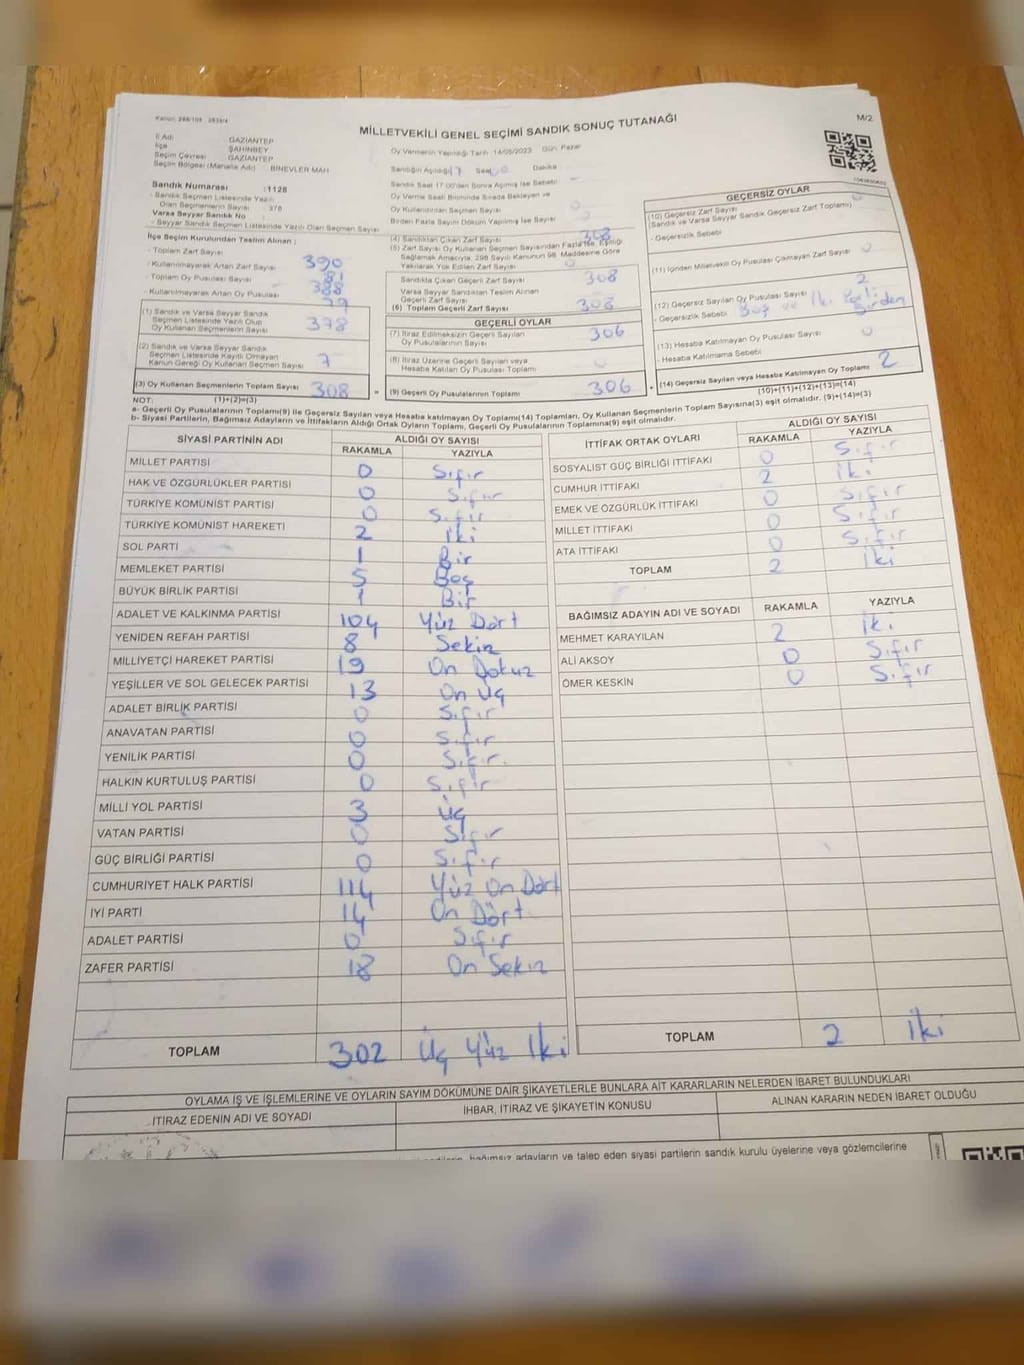 MİLLETVEKİLİ GENEL SEÇİMİ SANDIK SONUÇ TUTANAĞI
M/2
İl Adı GAZİANTEP
İlçe ŞAHİNBEY
Seçim Çevresi GAZİANTEP
Seçim Bölgesi (Mahalle Adı) BİNEVLER MAH
Sandık Numarası :1128
- Sandık Seçmen Listesinde Yazılı
Olan Seçmenlerin Sayısı : 378
Varsa Seyyar Sandık No
- Seyyar Seçmen Listesinde Yazılı Olan Seçmen Sayısı
İlçe Seçim Kurulundan Teslim Alınan :
- Toplam Zarf Sayısı 390
- Kullanılmayarak Artan Zarf Sayısı 81
- Toplam Oy Pusulası Sayısı 388
- Kullanılmayarak Artan Oy Pusulası
(1) Sandık ve Varsa Seyyar Sandık
Seçmen Listesinde Yazılı Olup
Oy Kullanan Seçmenlerin Sayısı 378
(2) Sandık ve Varsa Seyyar Sandık
Seçmen Listesinde Kayıtlı Olmayan
Kanun Gereği Oy Kullanan Seçmen Sayısı 7
(3) Oy Kullanan Seçmenlerin Toplam Sayısı 308
Oy Vermenin Yapıldığı Tarih 14/05/2023 Gün: Pazar
Sandığın Açıldığı 17 Saat Dakika
Sandık Saat 17.00'den Sonra Açılmış İse Sebebi
Oy Verme Saati Bitiminde Sırada Bekleyen ve
Oy Kullandırılan Seçmen Sayısı
Birden Fazla Sayım Döküm Yapılmış İse Sayısı
(4) Sandıktan Çıkan Zarf Sayısı 308
(5) Zarf Sayısı Oy Kullanan Seçmen Sayısından Fazla İse, Eşitliği
Sağlamak Amacıyla, 298 Sayılı Kanunun 98. Maddesine Göre
Yakılarak Yok Edilen Zarf Sayısı 0
Sandıkta Çıkan Geçerli Zarf Sayısı 308
Varsa Seyyar Sandıktan Teslim Alınan
Geçerli Zarf Sayısı
(6) Toplam Geçerli Zarf Sayısı 308
GEÇERLİ OYLAR
(7) İtiraz Edilmeksizin Geçerli Sayılan
Oy Pusulalarının Sayısı 306
(8) İtiraz Üzerine Geçerli Sayılan veya
Hesaba Katılan Oy Pusulası Toplamı 0
(9) Geçerli Oy Pusulalarının Toplamı 306
GEÇERSİZ OYLAR
(10) Geçersiz Zarf Sayısı
(Sandık ve Varsa Seyyar Sandık Geçersiz Zarf Toplamı)
- Geçersizlik Sebebi
(11) İçinden Milletvekili Oy Pusulası Çıkmayan Zarf Sayısı 0
(12) Geçersiz Sayılan Oy Pusulası Sayısı 2
- Geçersizlik Sebebi Boş ve İki
(13) Hesaba Katılmayan Oy Pusulası Sayısı 0
- Hesaba Katılmama Sebebi
(14) Geçersiz Sayılan veya Hesaba Katılmayan Oy Toplamı 2
(10)+(11)+(12)+(13)=(14)
NOT: (1)+(2)=(3)
a- Geçerli Oy Pusulalarının Toplamı(9) ile Geçersiz Sayılan veya Hesaba katılmayan Oy Toplamı(14) Toplamları, Oy Kullanan Seçmenlerin Toplam Sayısına(3) eşit olmalıdır. (9)+(14)=(3)
b- Siyasi Partilerin, Bağımsız Adayların ve İttifakların Aldığı Ortak Oyların Toplamı, Geçerli Oy Pusulalarının Toplamına(9) eşit olmalıdır.
SİYASİ PARTİNİN ADI ALDIĞI OY SAYISI
RAKAMLA YAZIYLA
MİLLET PARTİSİ 0 Sıfır
HAK VE ÖZGÜRLÜKLER PARTİSİ 0 Sıfır
TÜRKİYE KOMÜNİST PARTİSİ 0 Sıfır
TÜRKİYE KOMÜNİST HAREKETİ 2 İki
SOL PARTİ 1 Bir
MEMLEKET PARTİSİ 5 Beş
BÜYÜK BİRLİK PARTİSİ 1 Bir
ADALET VE KALKINMA PARTİSİ 104 Yüz Dört
YENİDEN REFAH PARTİSİ 8 Sekiz
MİLLİYETÇİ HAREKET PARTİSİ 19 On Dokuz
YEŞİLLER VE SOL GELECEK PARTİSİ 13 On Üç
ADALET BİRLİK PARTİSİ 0 Sıfır
ANAVATAN PARTİSİ 0 Sıfır
YENİLİK PARTİSİ 0 Sıfır
HALKIN KURTULUŞ PARTİSİ 0 Sıfır
MİLLİ YOL PARTİSİ 3 Üç
VATAN PARTİSİ 0 Sıfır
GÜÇ BİRLİĞİ PARTİSİ 0 Sıfır
CUMHURİYET HALK PARTİSİ 114 Yüz On Dört
İYİ PARTİ 14 On Dört
ADALET PARTİSİ 0 Sıfır
ZAFER PARTİSİ 18 On Sekiz
TOPLAM 302 Üç Yüz İki
İTTİFAK ORTAK OYLARI ALDIĞI OY SAYISI
RAKAMLA YAZIYLA
SOSYALİST GÜÇ BİRLİĞİ İTTİFAKI 0 Sıfır
CUMHUR İTTİFAKI 2 İki
EMEK VE ÖZGÜRLÜK İTTİFAKI 0 Sıfır
MİLLET İTTİFAKI 0 Sıfır
ATA İTTİFAKI 0 Sıfır
TOPLAM 2 İki
BAĞIMSIZ ADAYIN ADI VE SOYADI RAKAMLA YAZIYLA
MEHMET KARAYILAN 2 İki
ALİ AKSOY 0 Sıfır
ÖMER KESKİN 0 Sıfır
TOPLAM 2 İki
OYLAMA İŞ VE İŞLEMLERİNE VE OYLARIN SAYIM DÖKÜMÜNE DAİR ŞİKAYETLERLE BUNLARA AİT KARARLARIN NELERDEN İBARET BULUNDUKLARI
İTİRAZ EDENİN ADI VE SOYADI İHBAR, İTİRAZ VE ŞİKAYETİN KONUSU ALINAN KARARIN NEDEN İBARET OLDUĞU
bağımsız adayların ve talep eden siyasi partilerin sandık kurulu üyelerine veya gözlemcilerine